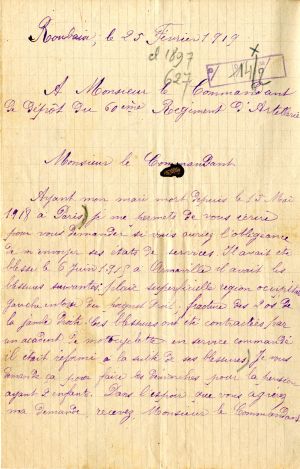 Roubaix, le 25 Février 1919.
cl 1897
627
A Monsieur le Commandant
De Dépôt Du 60ième Régiment D'Artillerie
Monsieur le Commandant
Ayant mon mari mort depuis le 15 Mai
1918 à Paris, je me permets de vous écrire
pour vous demander si vous auriez l'obligeance
de m'envoyer ses états de services. Il avait été
blessé le 6 Juin 1915 à il avait les
blessures suivantes plaie superficielle région occipitale
gauche fracture des 2 os de
la jambe droite. Ces blessures ont été contractées par
un accident de motocyclette en service commandé
il était réformé à la suite de ses blessures, Je vous
demande ça pour faire les démarches pour la pension
ayant 2 enfants. Dans l'espoir que vous agréerez
ma demande, recevez Monsieur le Commandant